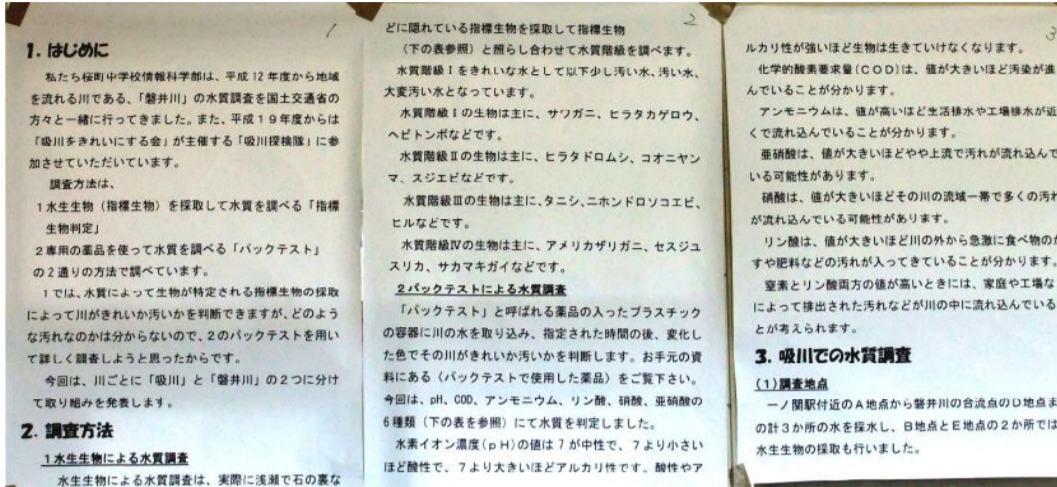 1
1. はじめに
私たち桜町中学校情報科学部は、平成12年度から地域
を流れる川である、「磐井川」の水質調査を国土交通省の
方々と一緒に行ってきました。また、平成19年度からは
「吸川をきれいにする会」が主催する「吸川探検隊」に参
加させていただいています。
調査方法は、
1水生生物（指標生物）を採取して水質を調べる「指標
生物判定」
2専用の薬品を使って水質を調べる「パックテスト」
の2通りの方法で調べています。
1では、水質によって生物が特定される指標生物の採取
によって川がきれいか汚いかを判断できますが、どのよう
な汚れなのかは分からないので、2のパックテストを用い
て詳しく調査しようと思ったからです。
今回は、川ごとに「吸川」と「磐井川」の2つに分け
て取り組みを発表します。
2. 調査方法
1水生生物による水質調査
水生生物による水質調査は、実際に浅瀬で石の裏な
2
どに隠れている指標生物を採取して指標生物
（下の表参照）と照らし合わせて水質階級を調べます。
水質階級Ⅰをきれいな水として以下少し汚い水、汚い水、
大変汚い水となっています。
水質階級Ⅰの生物は主に、サワガニ、ヒラタカゲロウ、
ヘビトンボなどです。
水質階級Ⅱの生物は主に、ヒラタドロムシ、コオニヤン
マ、スジエビなどです。
水質階級Ⅲの生物は主に、タニシ、ニホンドロソコエビ、
ヒルなどです。
水質階級Ⅳの生物は主に、アメリカザリガニ、セスジユ
スリカ、サカマキガイなどです。
2パックテストによる水質調査
「パックテスト」と呼ばれる薬品の入ったプラスチック
の容器に川の水を取り込み、指定された時間の後、変化し
た色でその川がきれいか汚いかを判断します。お手元の資
料にある〈パックテストで使用した薬品〉をご覧下さい。
今回は、pH、COD、アンモニウム、リン酸、硝酸、亜硝酸の
6種類（下の表を参照）にて水質を判定しました。
水素イオン濃度(pH)の値は7が中性で、7より小さい
ほど酸性で、7より大きいほどアルカリ性です。酸性やア
3
ルカリ性が強いほど生物は生きていけなくなります。
化学的酸素要求量(COD)は、値が大きいほど汚染が進
んでいることが分かります。
アンモニウムは、値が高いほど生活排水や工場排水が近
くで流れ込んでいることが分かります。
亜硝酸は、値が大きいほどやや上流で汚れが流れ込んで
いる可能性があります。
硝酸は、値が大きいほどその川の流域一帯で多くの汚れ
が流れ込んでいる可能性があります。
リン酸は、値が大きいほど川の外から急激に食べ物のか
すや肥料などの汚れが入ってきていることが分かります。
窒素とリン酸両方の値が高いときには、家庭や工場な
によって排出された汚れなどが川の中に流れ込んでいる
とが考えられます。
3. 吸川での水質調査
(1)調査地点
一ノ関駅付近のA地点から磐井川の合流点のD地点ま
の計3か所の水を採水し、B地点とE地点の2か所では
水生生物の採取も行いました。